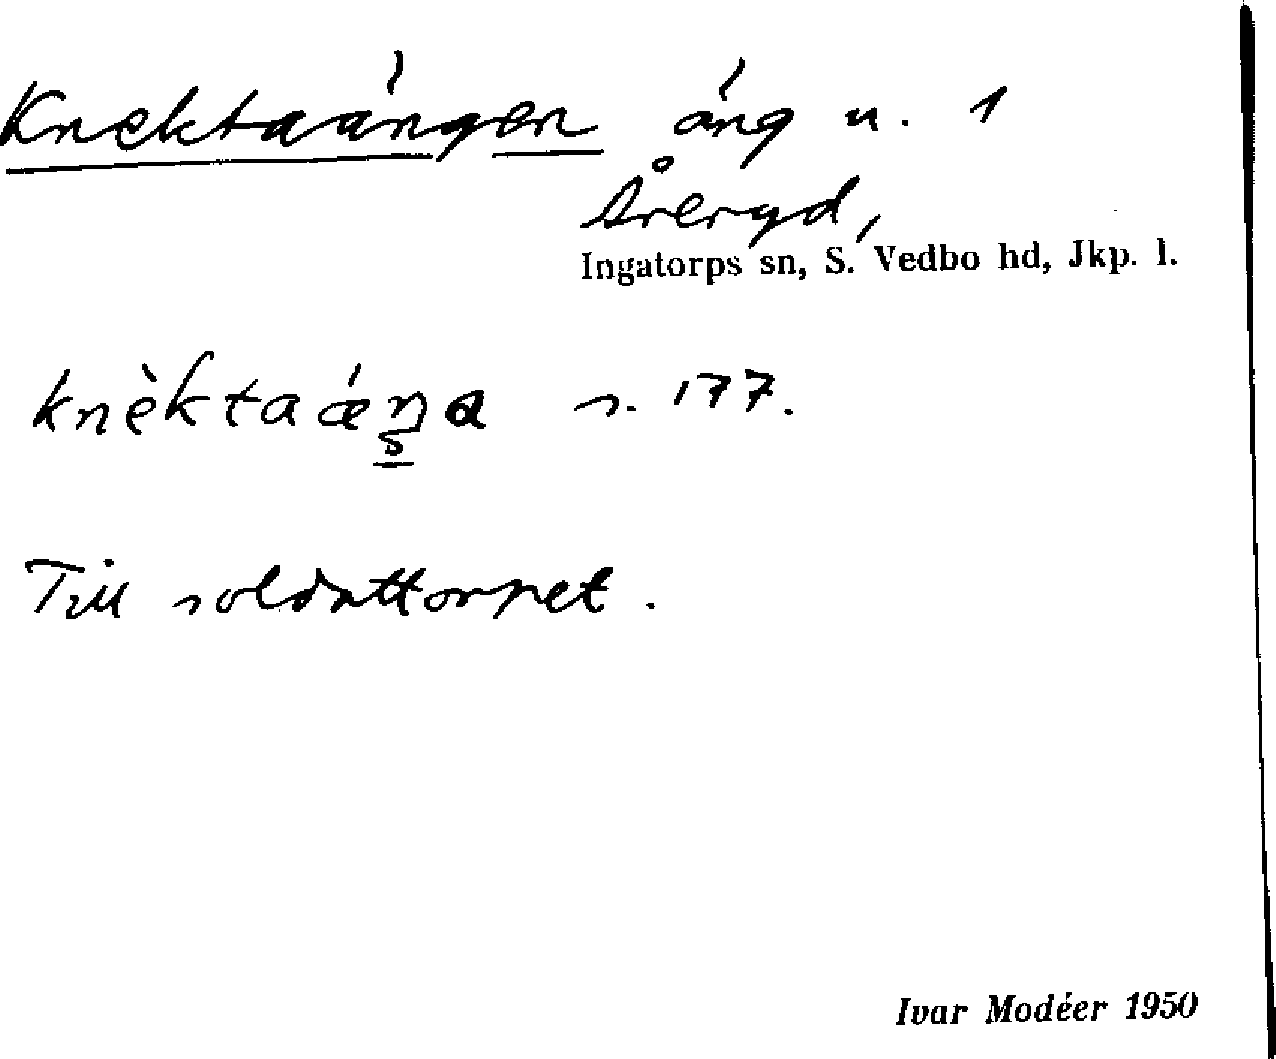 Knektaängen äng u. 1
Åreryd,
Ingatorps sn, S. Vedbo hd, Jkp. l.
knèktaǽŋa s. 177.
Till soldattorpet.
Ivar Modéer 1950